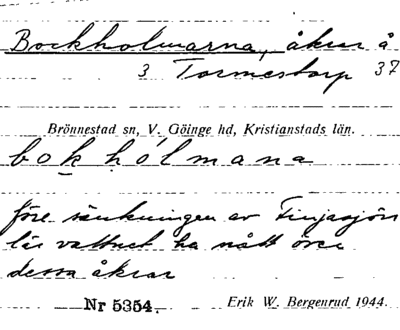 Bockholmarna, åkrar å
3 Tormestorp 37
Brönnestad sn, V. Göinge hd, Kristianstads län.
bok hólmana
före sänkningen av Finjasjön
lär vattnet ha nått över
dessa åkrar
Nr 5354. Erik W. Bergenrud 1944.